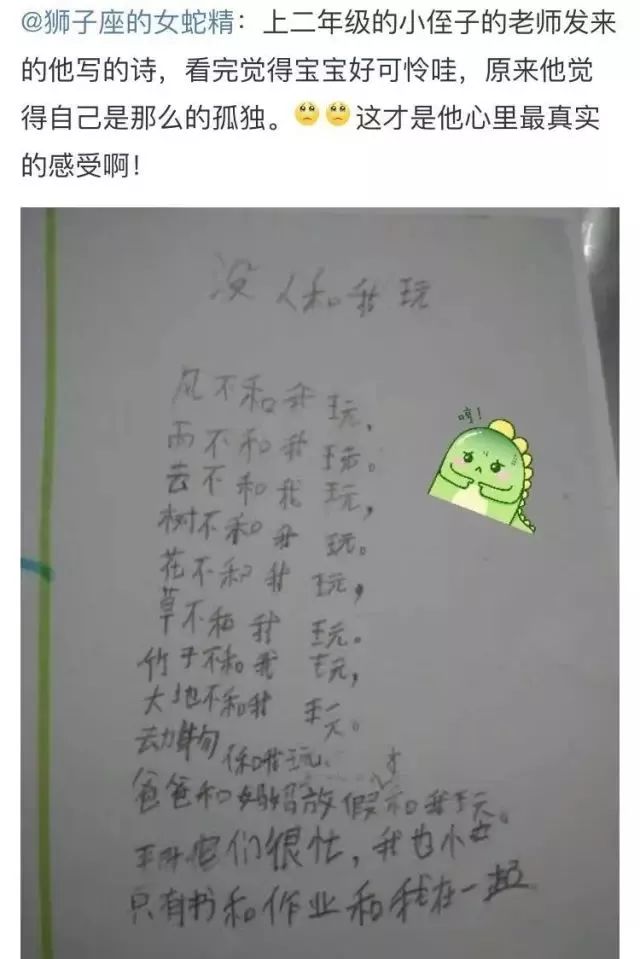 @狮子座的女蛇精：上二年级的小侄子的老师发来
的他写的诗，看完觉得宝宝好可怜哇，原来他觉
得自己是那么的孤独。🙁🙁这才是他心里最真实
的感受啊！
没人和我玩
风不和我玩，
雨不和我玩。
云不和我玩，
树不和我玩。
花不和我玩，
草不和我玩。
竹子不和我玩，
大地不和我玩。
动物 我玩、
爸爸和妈妈放假才和我玩。
平时它们很忙，我也忙
只有书和作业和我在一起
哼！